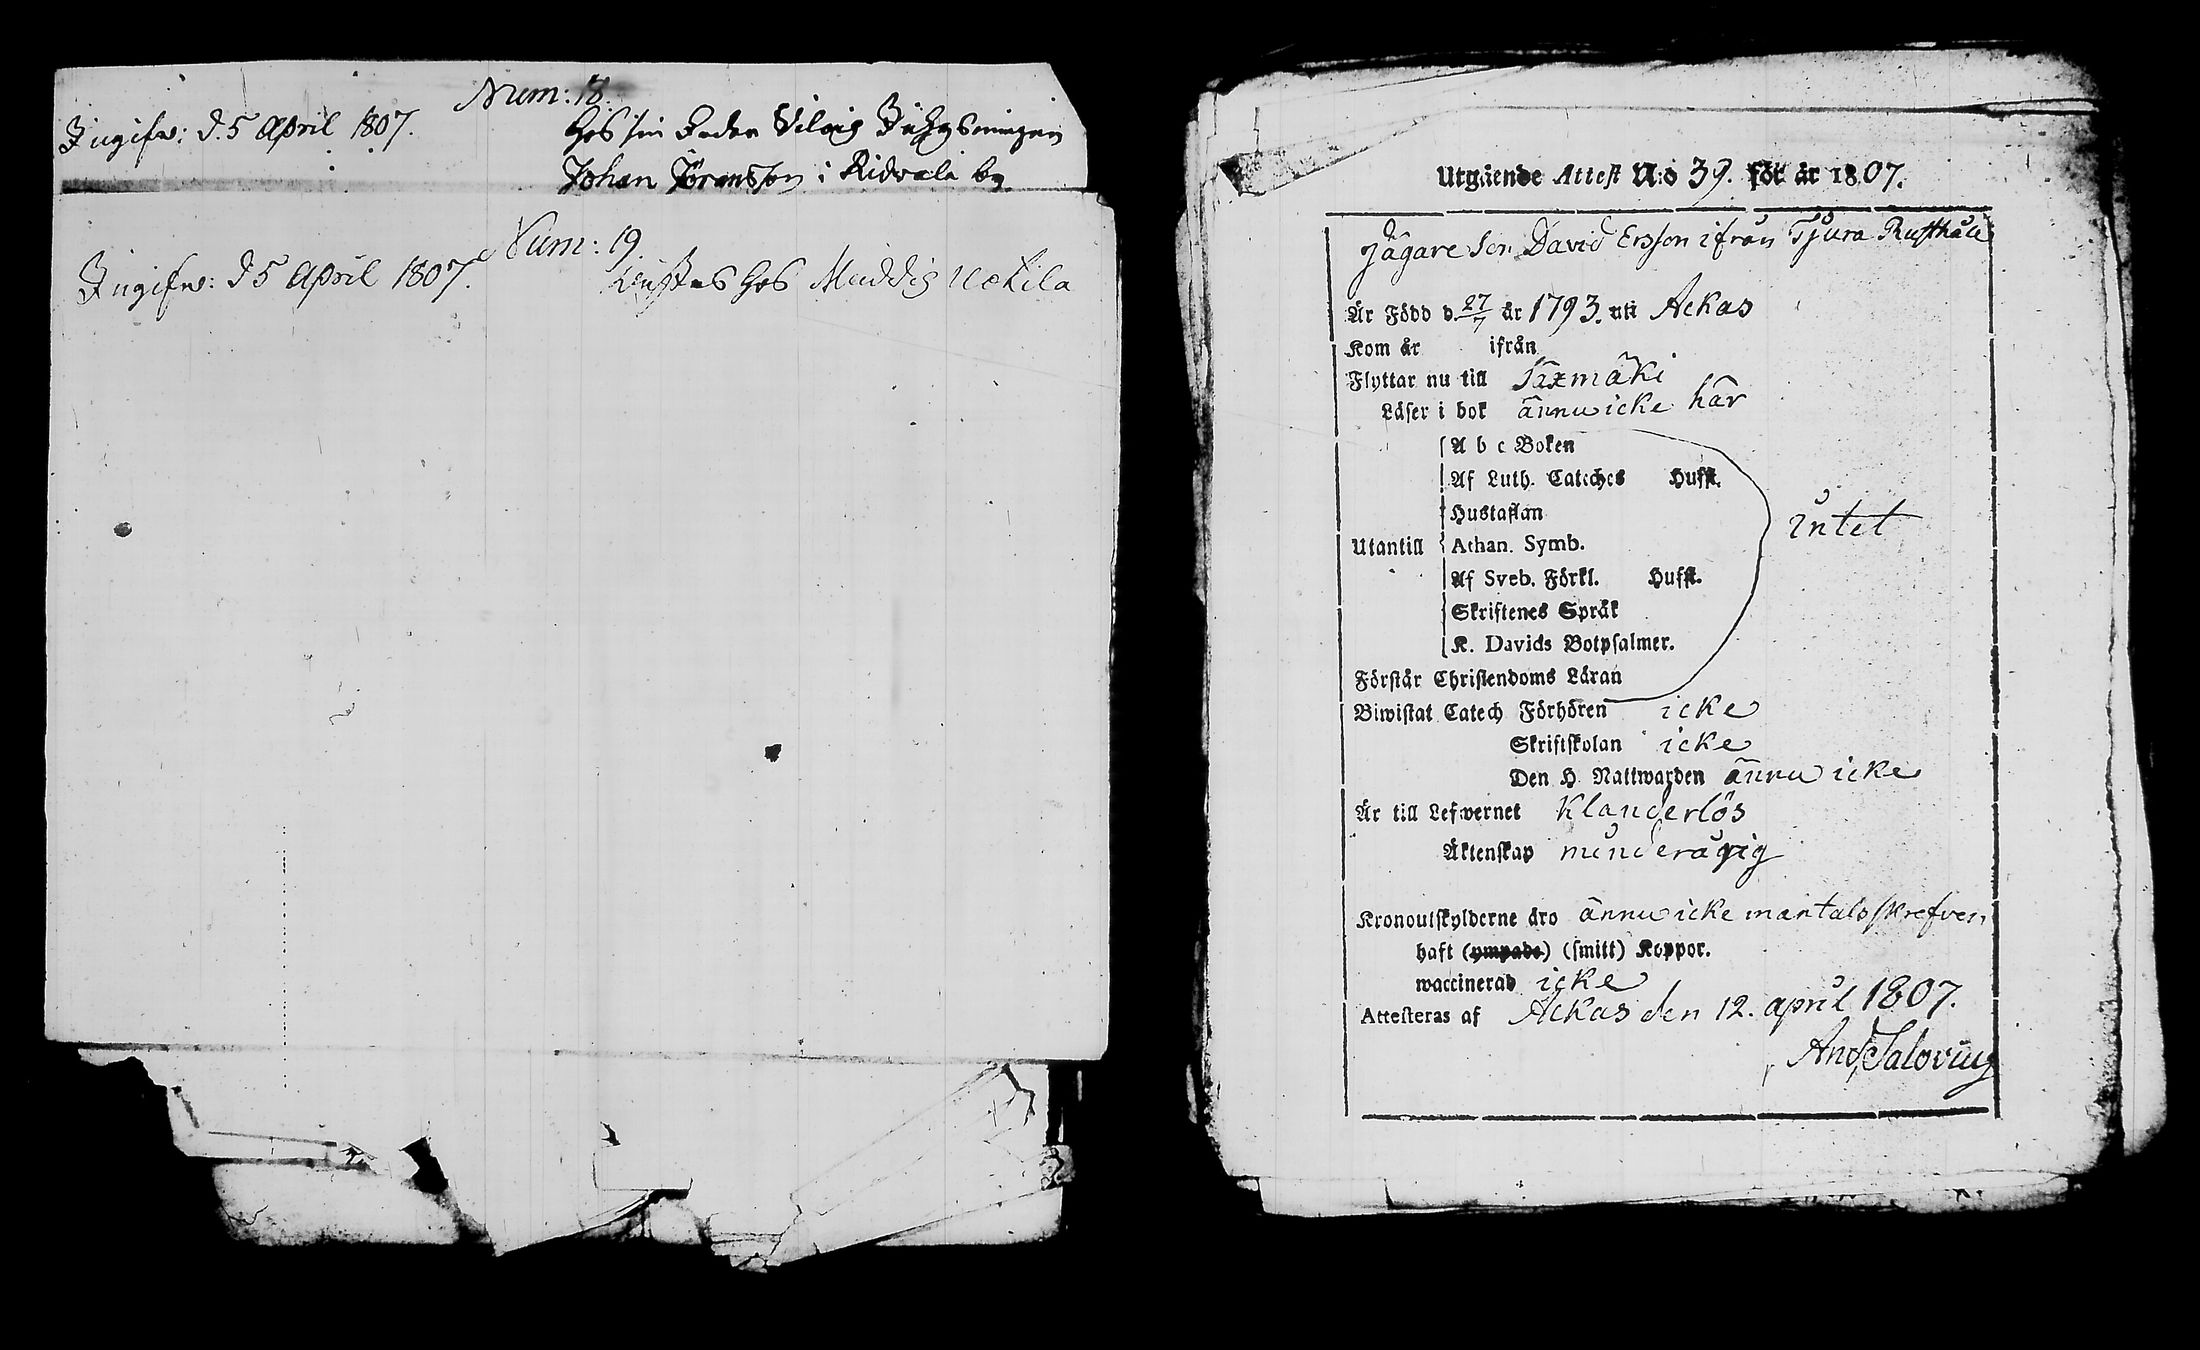 Num: 18.
Ingifw: d. 5 April 1807.
Hos sin
Johan Jöransson i Ridvala by
Num: 19.
Ingifw: d 5 April 1807.
hos Uotila
Utgående Attest N:o 39. för år 1807.
Jägare Son David Ersson ifrån Tjura Rusthåll
Är Född d. 27/7 år 1793. uti Ackas
Kom år ifrån
Flyttar nu till Säxmäki
Läser i bok ännu icke här
A b c Boken
Af Luth. Cateches Hufst.
Hustaflan
Utantill Athan. Symb.
intet
Af Sveb. Förkl. Hufst.
Skriftenes Språk
K. Davids Botpsalmer.
Förstår Christendoms Läran
Biwistat Catech Förhören icke
Skriftskolan icke
Den H Nattwarden ännu icke
Är till Lefwernet Klanderlös
Äktenskap minderågig
Kronoutskylderne äro ännu icke mantalsskrefven
haft (ympade) (smitt) Koppor.
waccinerad icke
Attesteras af Ackas den 12. april 1807.